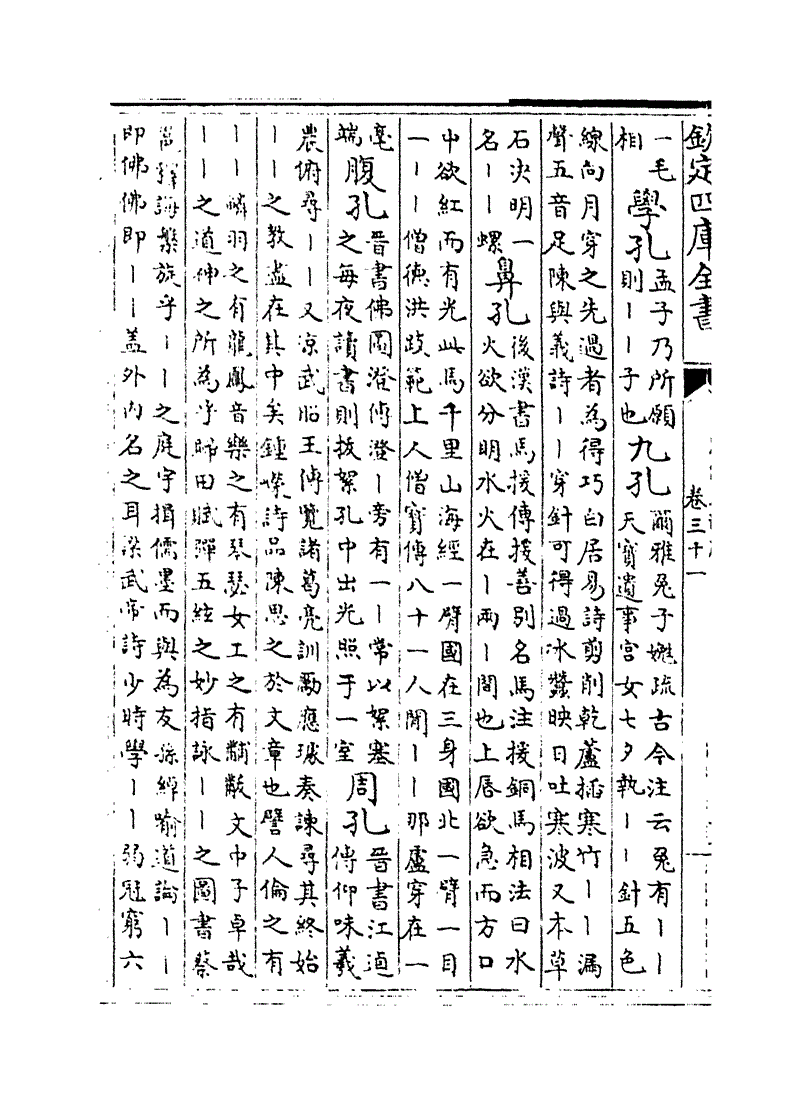 欽定四庫全書
卷三十一
一毛
相
學孔
孟子乃所願
則丨丨子也
九孔
爾雅兔子嬎疏古今注云兔有丨丨
天寶遺事宮女七夕執丨丨針五色
線向月穿之先過者為得巧白居易詩剪削乾蘆插寒竹丨丨漏
聲五音足陳與義詩丨丨穿針可得過冰蠶映日吐寒波又本草
石決明一
名丨丨螺
鼻孔
後漢書馬援傳援善別名馬注援銅馬相法曰水
火欲分明水火在丨兩丨間也上唇欲急而方口
中欲紅而有光此馬千里山海經一臂國在三身國北一臂一目
一丨丨僧德洪跋範上人僧寶傳八十一人聞丨丨那盧穿在一
毫
端
腹孔
晉書佛圖澄傳澄丨旁有一丨常以絮塞
之每夜讀書則拔絮孔中出光照于一室
周孔
晉書江逌
傳仰味羲
農俯尋丨丨又涼武昭王傳覽諸葛亮訓勵應璩奏諫尋其終始
丨丨之教盡在其中矣鍾嶸詩品陳思之於文章也譬人倫之有
丨丨鱗羽之有龍鳳音樂之有琴瑟女工之有黼黻文中子卓哉
丨丨之道神之所為乎歸田賦彈五絃之妙指詠丨丨之圖書蔡
邕釋誨槃旋乎丨丨之庭宇揖儒墨而與為友孫綽喻道論丨丨
即佛佛即丨丨蓋外內名之耳梁武帝詩少時學丨丨弱冠窮六